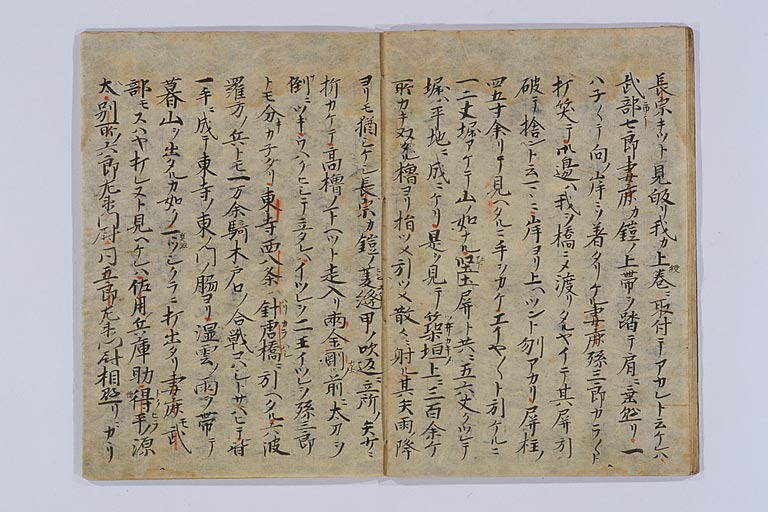 長宗キット見皈リ我カ上巻ニ取付テアカレト云ケレハ
武部七郎妻鹿カ鎧ノ上帯ヲ踏テ肩ニ乗然リ一
ハ子ハ子テ向ノ岸ニソ着タリケル妻鹿孫三郎カラ〳〵ト
打笑テ 邊ハ我ヲ橋ニメ渡リタルヤイテ其屏引
破テ捨ント云 ニ岸ヨリ上ヘツント刎アカリ屏柱ノ
四五寸余リテ見ヘタルニ手ヲカケエイヤ〳〵ト引ケルニ
一二丈堀アケテ山ノ如ナル堅土屏ト共ニ五六丈クツレテ
堀ハ平地ニ成ニケリ是ヲ見テ築垣上ニ三百余ケ
所カキ双タル櫓ヨリ指ツメ引ツメ散〻ニ射ル其矢雨ノ降
ヨリモ猶シケシ長宗カ鎧ノ菱縫甲ノ吹返ニ立所ノ矢少〻
折カケテ高櫓ノ下ヘツト走入リ両金剛ノ前ニ太刀ヲ
倒ニツキ テ立タルハイツレヲ二王イツレヲ孫三郎
トモ分カ子タリ東寺西八条 針唐橋ニ引ヘタル六波
羅方ノ兵トモ一万余騎木戸口ノ合戦 ヨハシトサハヒテ皆
一手ニ成テ東寺ノ東ノ門ノ脇ヨリ湿雲ノ雨ヲ帯テ
暮山ヲ出タルカ如ノマツシクラニ打出タリ妻鹿モ武
部モスハヤ打レヌト見ヘケレハ佐用兵庫助得平ノ源
太別所六郎左衛門尉同五郎左衛門尉相懸リニカリ